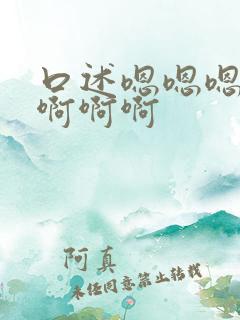 口述嗯嗯嗯
啊啊啊
阿真
未经同意禁止转载